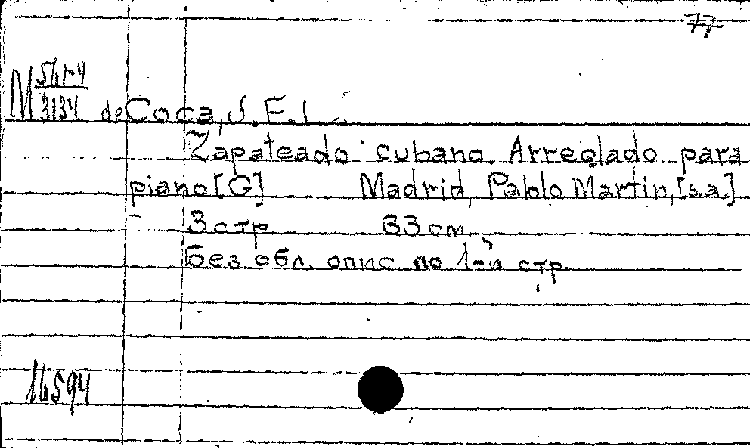 77
M
3134
de Coca, J. E.
Zapateado cubano. Arreglado para
piano [G] Madrid, Pablo Martin, [s.a.]
3 стр 33 cm.
Без обл. опис. по 1-й стр.
16594